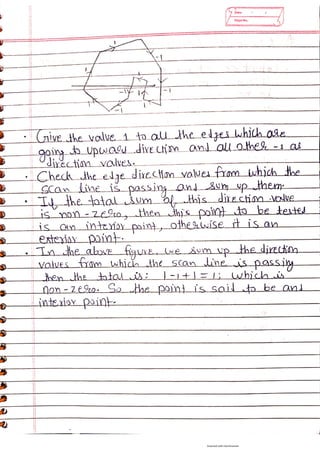 Date
1
1
1
-1
-1
1
-1
1
-1
1
-1
• Give the value 1 to all the edges which are
going to upward direction and all other -1 as
direction values.
• Check the edge direction values from which the
scan line is passing and sum up them.
• If the total sum of this direction value
is non-zero, then this point to be tested
is an interior point, otherwise it is an
exterior point.
• In the above figure, we sum up the direction
values from which the scan line is passing
then the total is: 1-1+1=1; which is
non-zero. So the point is said to be an
interior point.